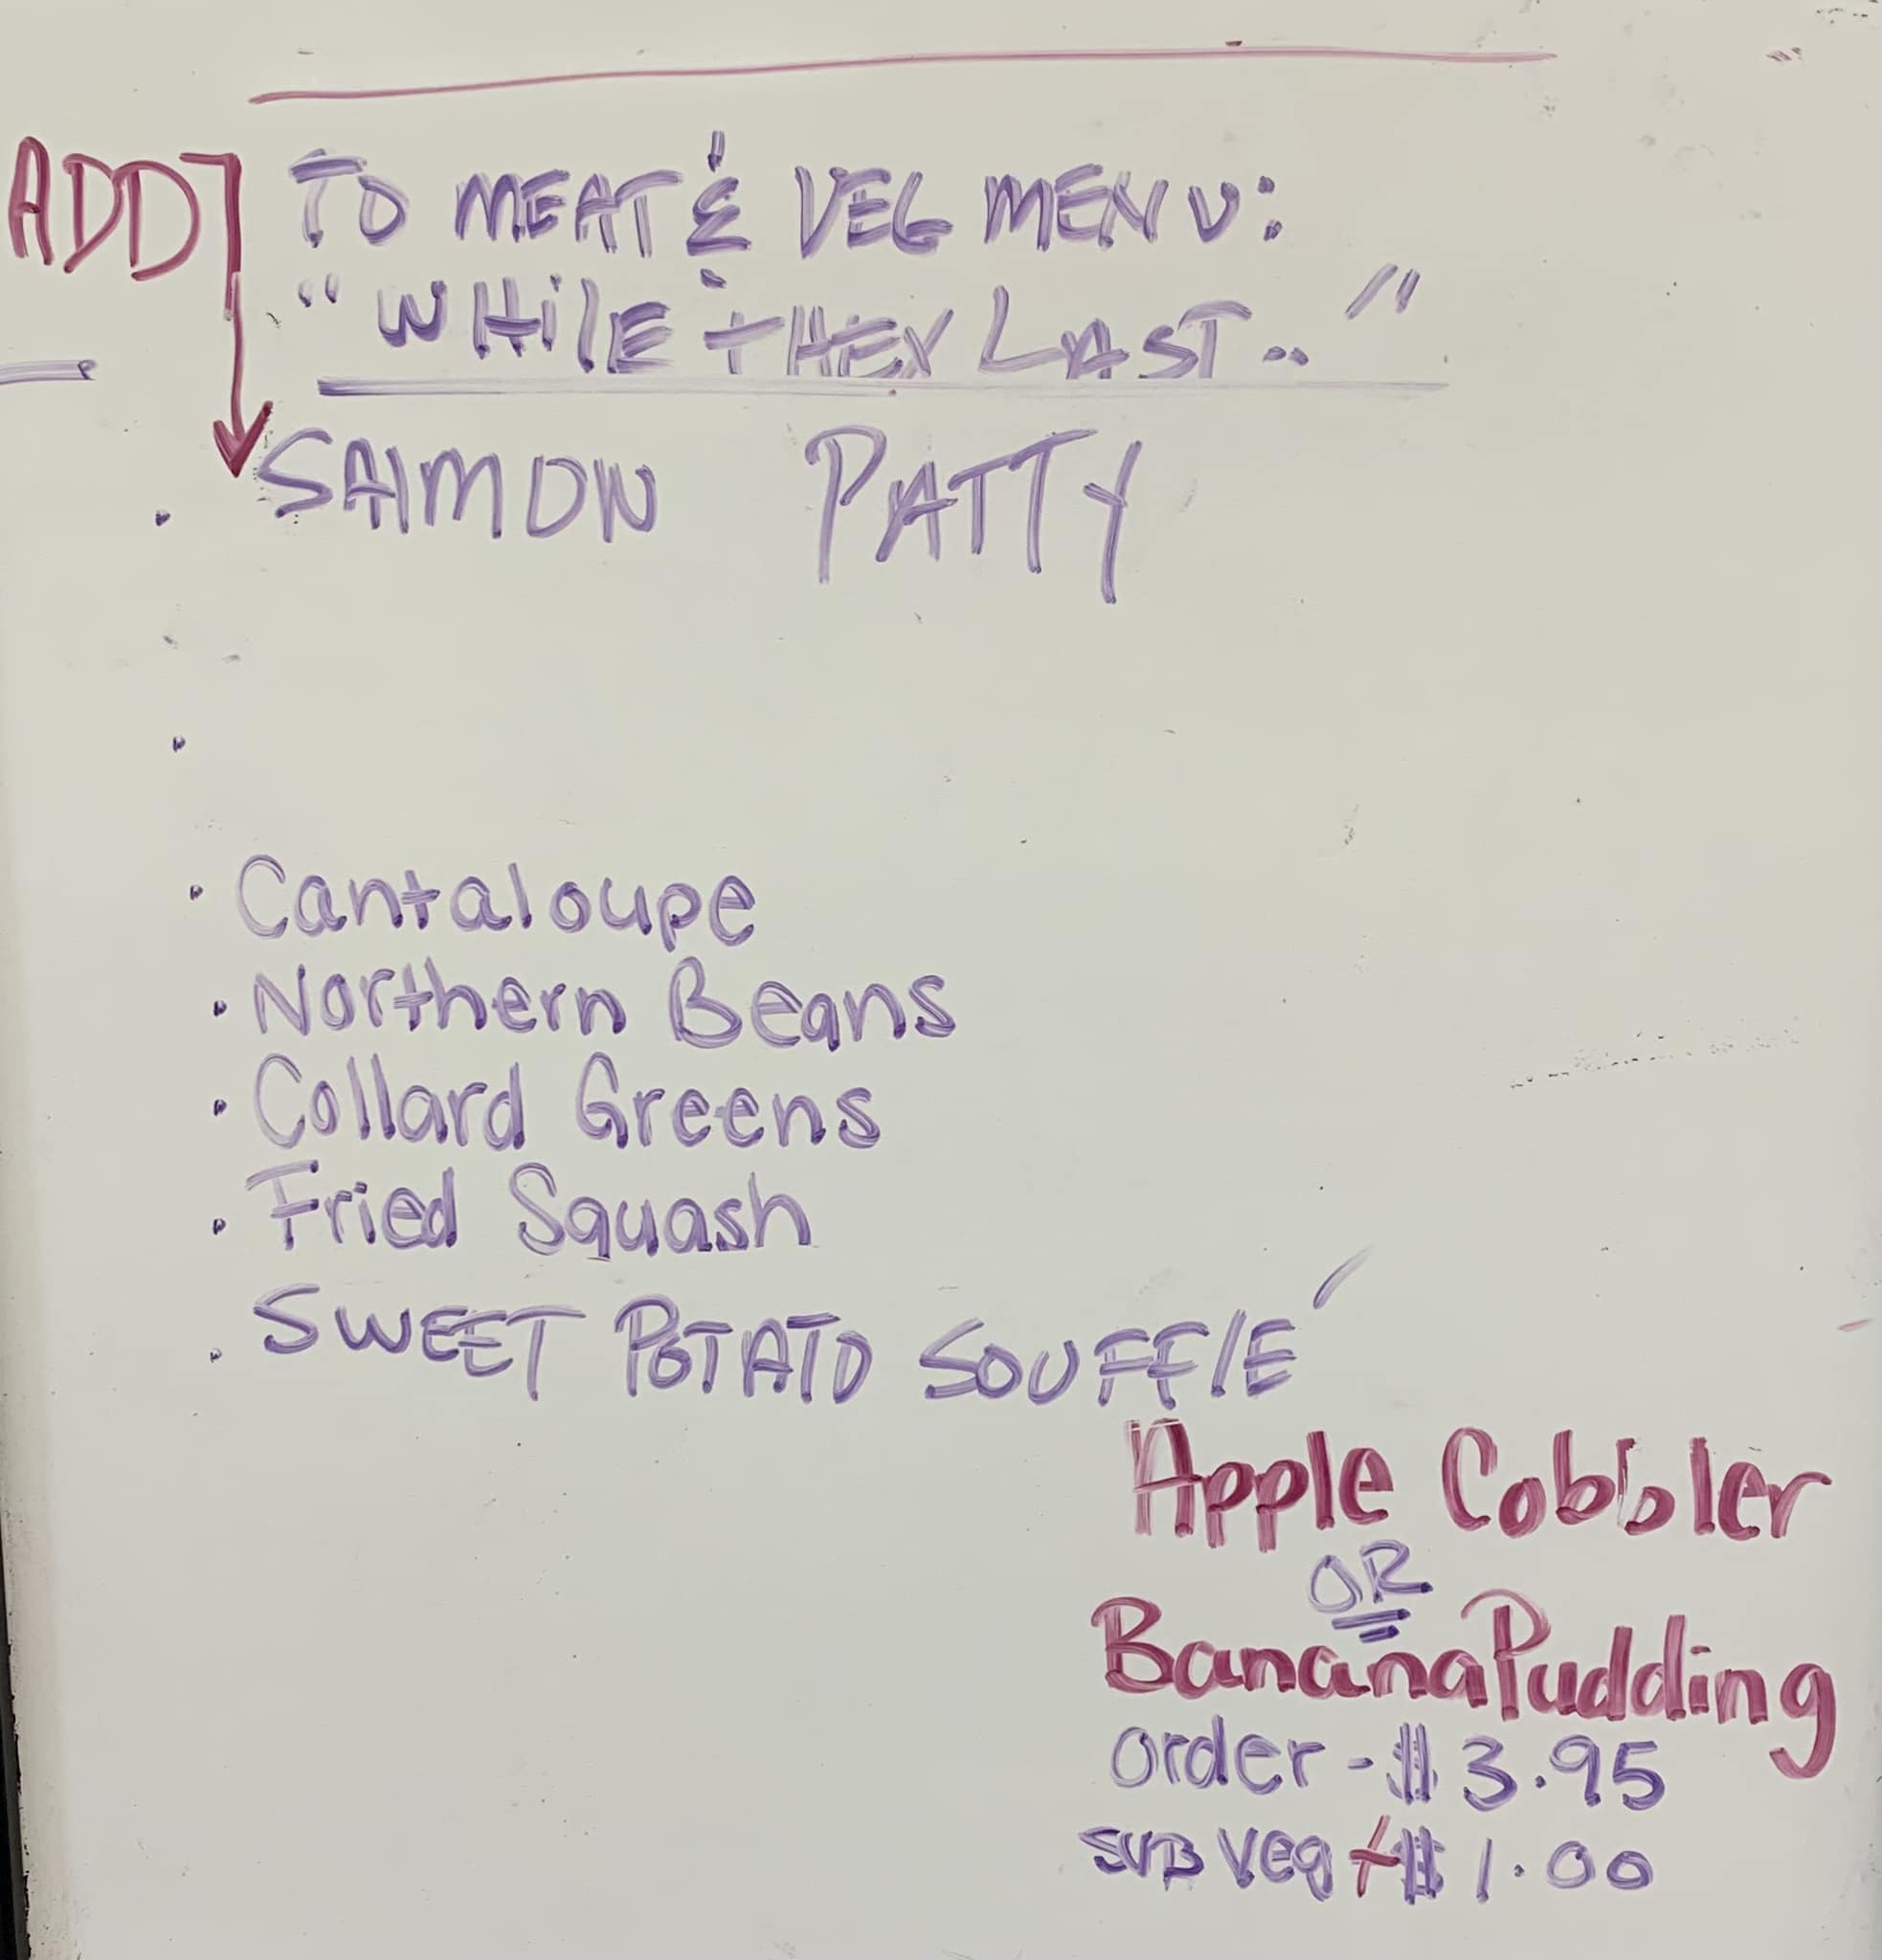 ADD TO MEAT & VEG MENU:
"WHilE tHEY LAST.."
SAlMON PATTY
· Cantaloupe
· Northern Beans
· Collard Greens
· Fried Squash
· SWEET POTATO SOUFFlÉ
Apple Cobbler
OR
Banana Pudding
order - $3.95
SUB Veg + $1.00